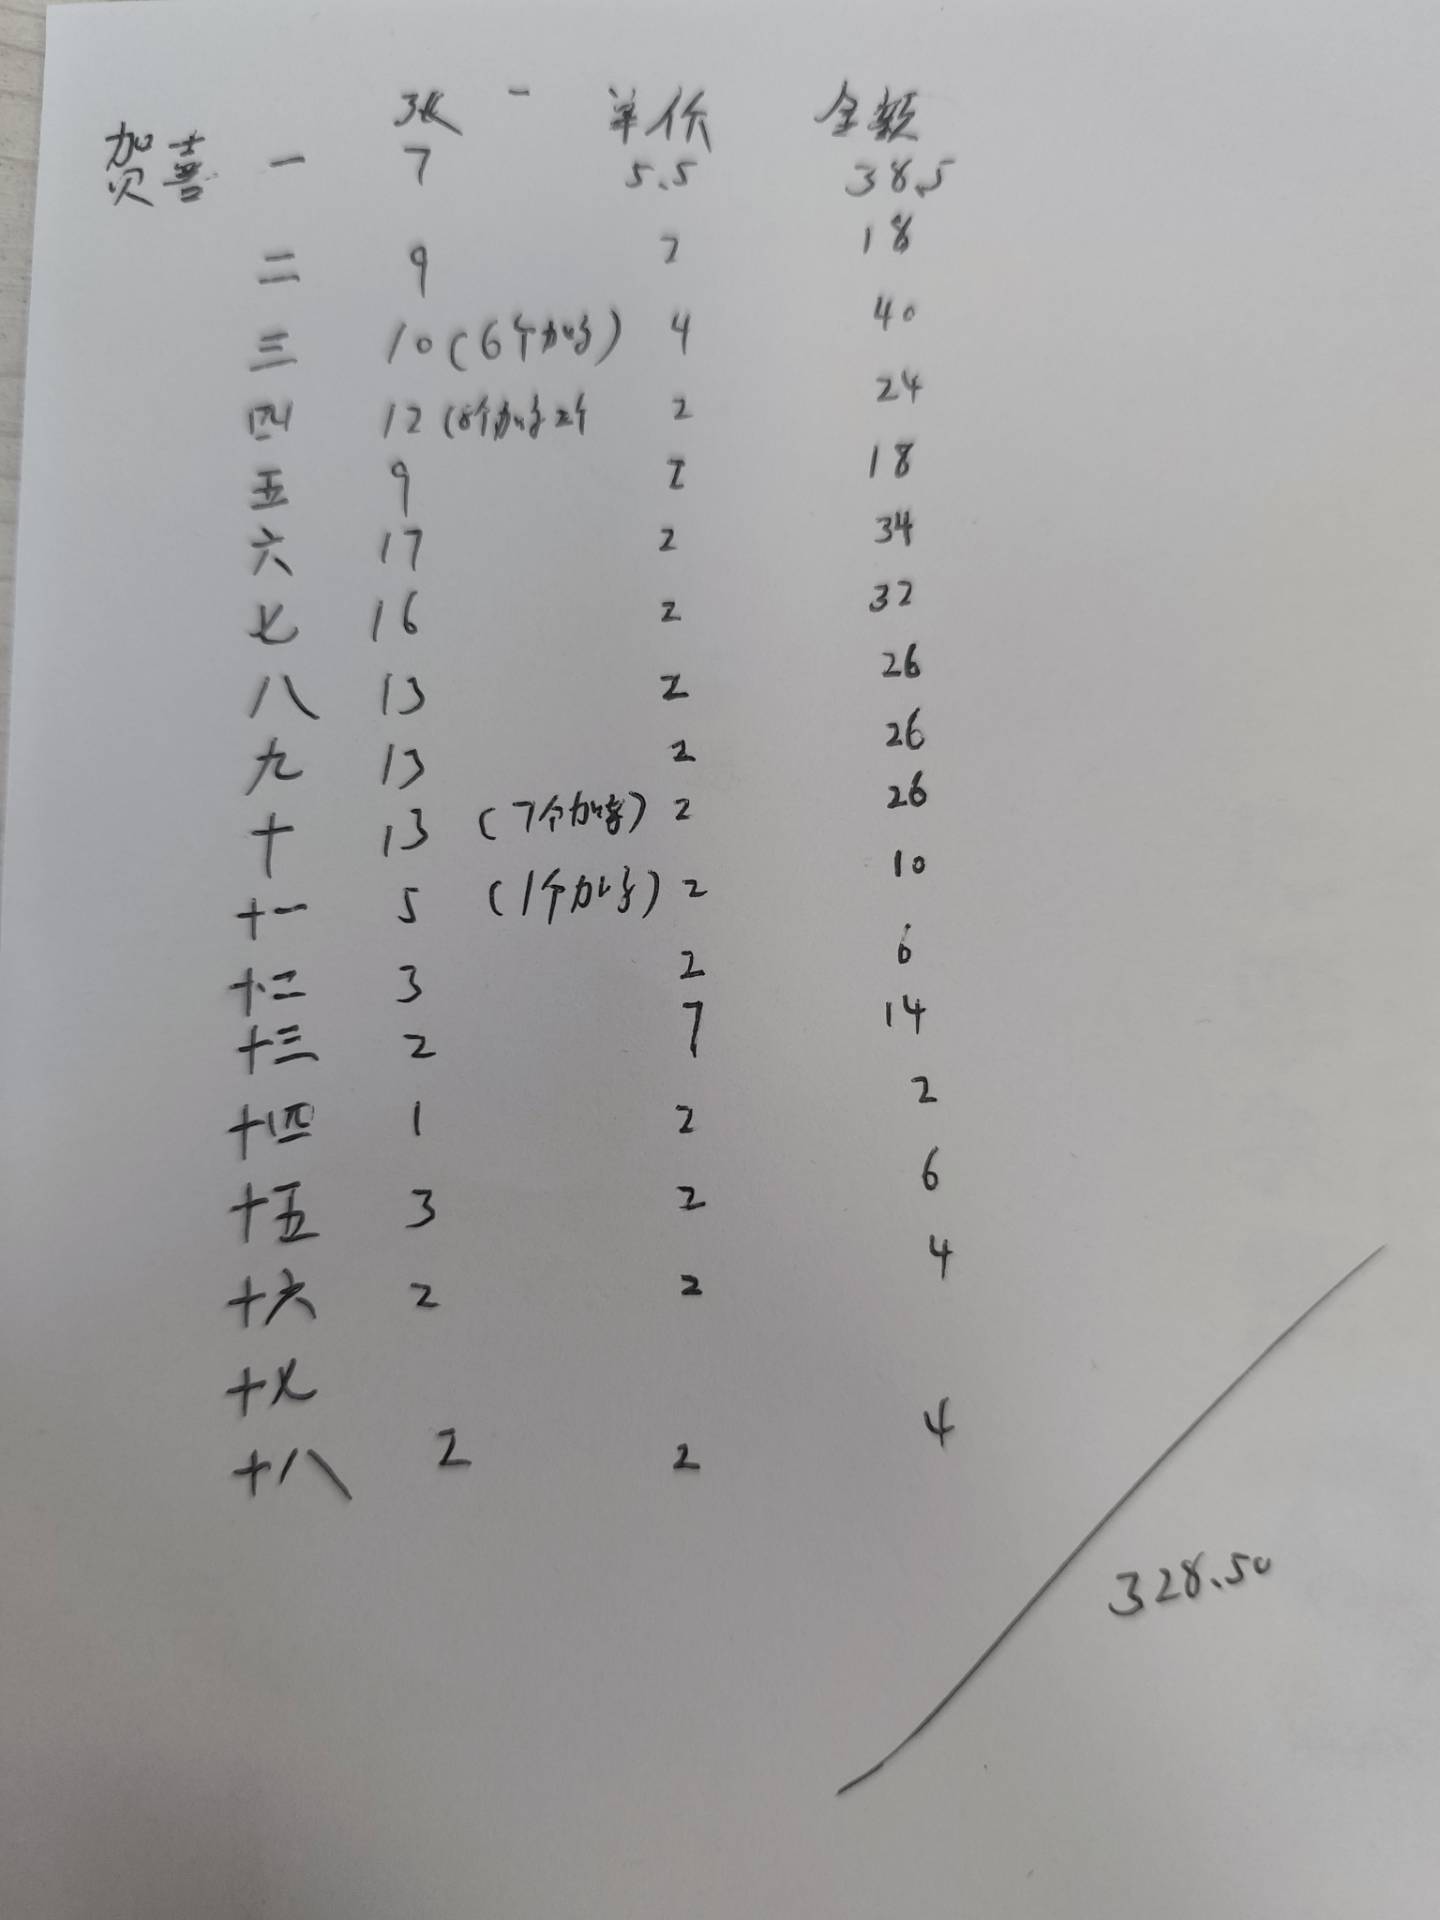 张 一 单价 金额
贺喜 一 7 5.5 38.5
二 9 2 18
三 10(6个加字) 4 40
四 12(8个加字2个 2 24
五 9 2 18
六 17 2 34
七 16 2 32
八 13 2 26
九 13 2 26
十 13 (7个加字) 2 26
十一 5 (1个加字) 2 10
十二 3 2 6
十三 2 7 14
十四 1 2 2
十五 3 2 6
十六 2 2 4
十七
十八 2 2 4
328.50